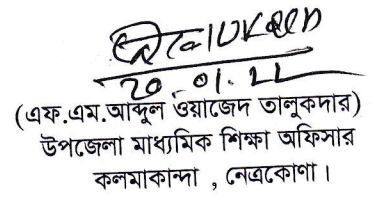 20.01.22
(এফ.এম.আব্দুল ওয়াজেদ তালুকদার)
উপজেলা মাধ্যমিক শিক্ষা অফিসার
কলমাকান্দা , নেত্রকোণা ।